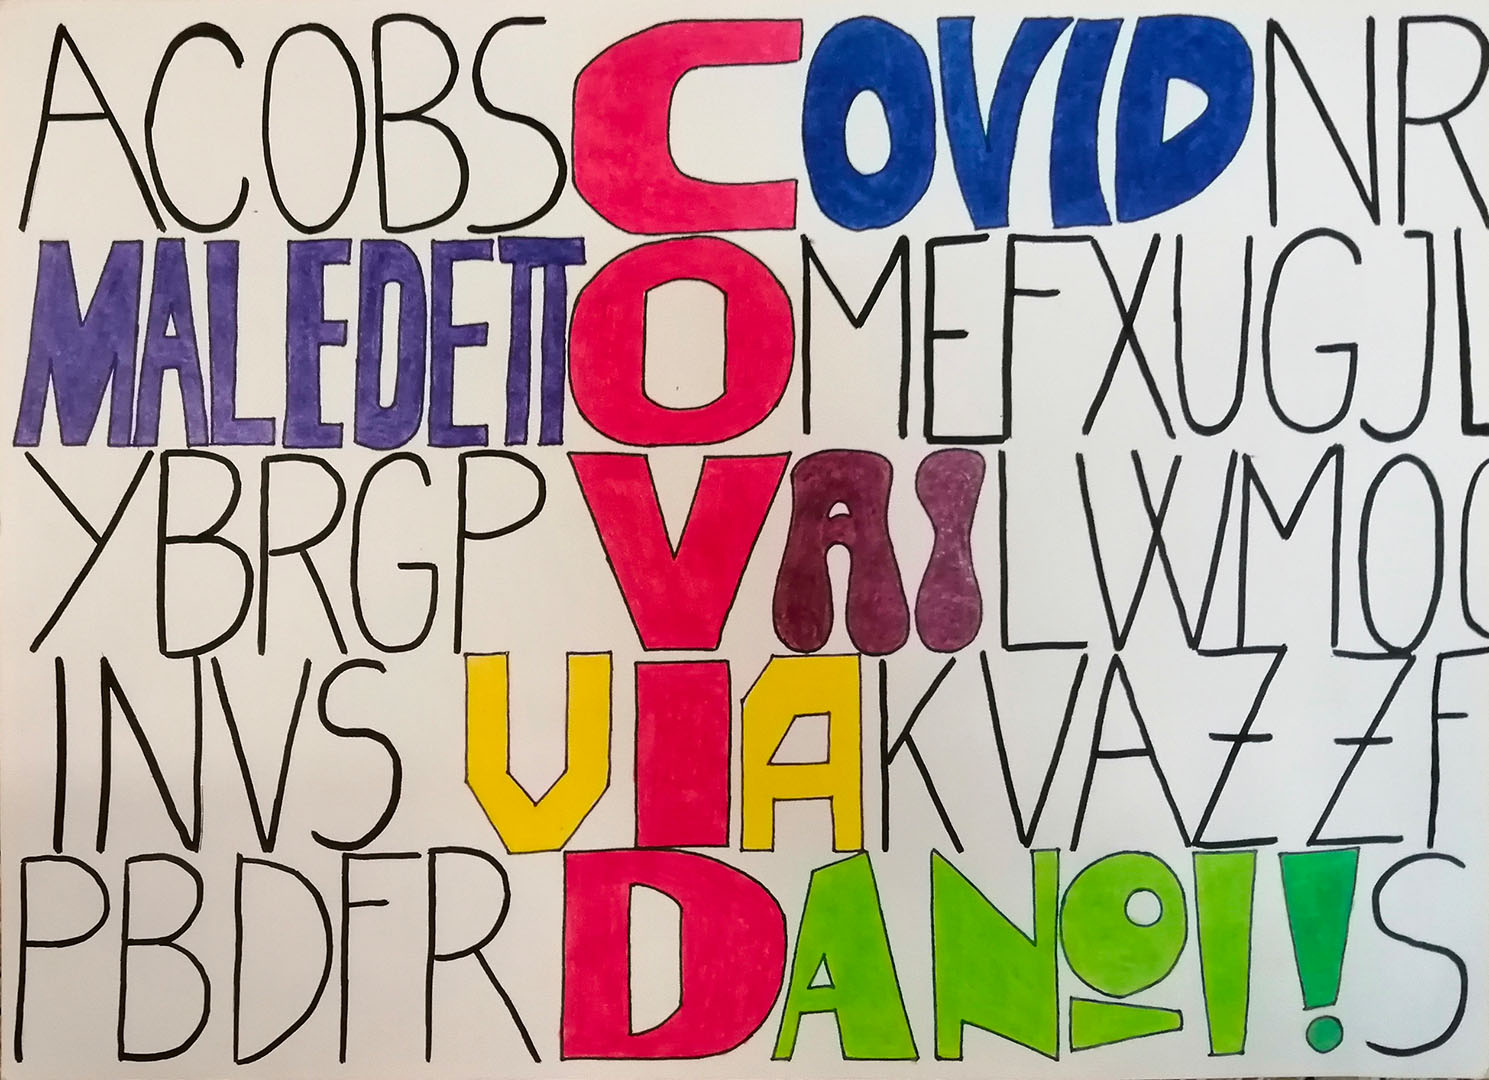 ACOBSCOVIDNR
MALEDETTOMEFXUGJL
YBRGPVAILWMO
INVSVIAKVAZZF
PBDFRDANOI!S